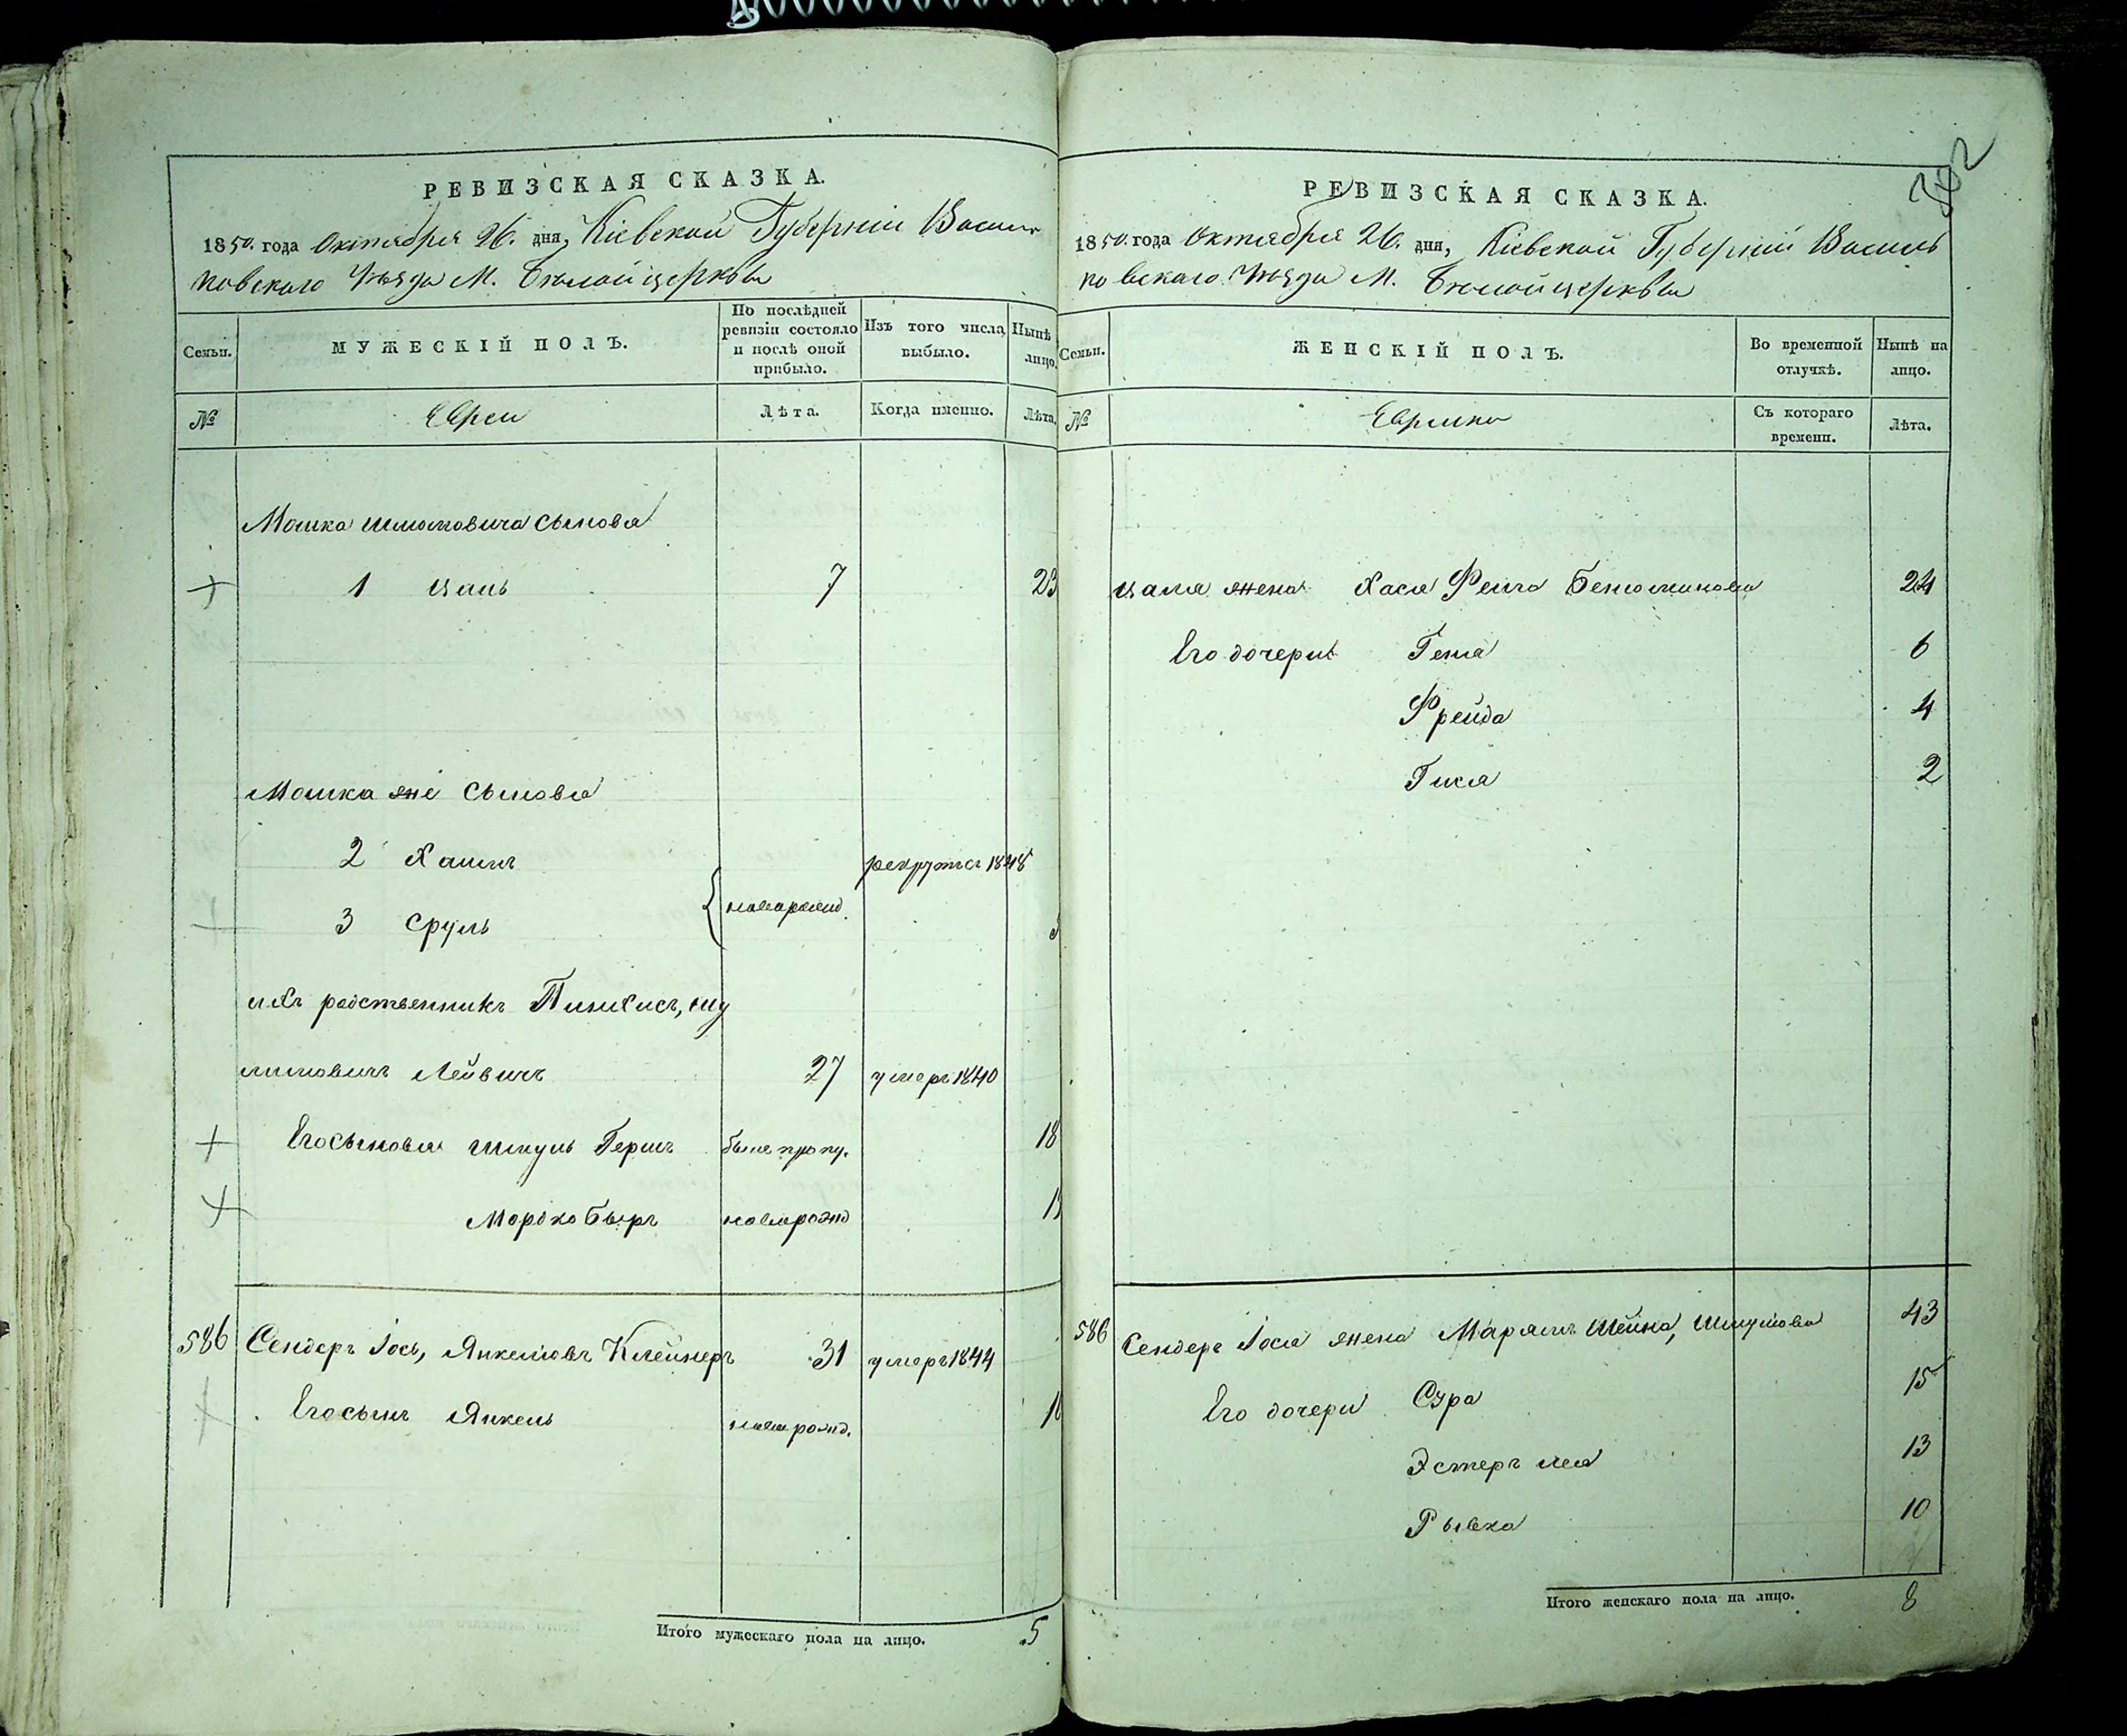 РЕВИЗСКАЯ СКАЗКА.
1850. года Октября 26. дня, Кіевской Губерніи Василь
ковского Уѣзда М. Бѣлойцеркви
Семьи.
МУЖЕСКІЙ ПОЛЪ.
По послѣдней ревизіи состояло и послѣ оной прибыло.
Изъ того числа выбыло.
Нынѣ лицо.
№
Евреи
Лѣта.
Когда именно.
Лѣта.
Мошка Шмомовича сыновя
1 Цаль 7 23
Мошка же сыновя
2 Хаимъ рекрутъ съ 1848
3 Сруль новорожд.
ихъ родственникъ Пинхисъ, шу
лимовичъ Лейвичъ 27 умеръ 1840
Его сыновя Шмуль Гершъ былъ пропу. 18
Мордко Бѣръ новорожд
586 Сендеръ Іось, Янкелювъ Клейнеръ 31 умеръ 1844
Его сынъ Янкель новорожд.
Итого мужескаго пола на лицо. 5
302
РЕВИЗСКАЯ СКАЗКА.
1850. года Октября 26. дня, Кіевской Губерніи Василь
ковскаго Уѣзда М. Бѣлойцеркви
Семьи.
ЖЕНСКІЙ ПОЛЪ.
Во временной отлучкѣ.
Нынѣ на лицо.
№
Еврейки
Съ котораго времени.
Лѣта.
Цаля жена Хася Фейга Бенюминова 24
Его дочери Геня 6
Фрейда 4
Гися 2
586 Сендеръ Іося жена Марямъ Шейна, Шмулова 43
Его дочери Сура 15
Эстеръ Лея 13
Рывка 10
Итого женскаго пола на лицо. 8